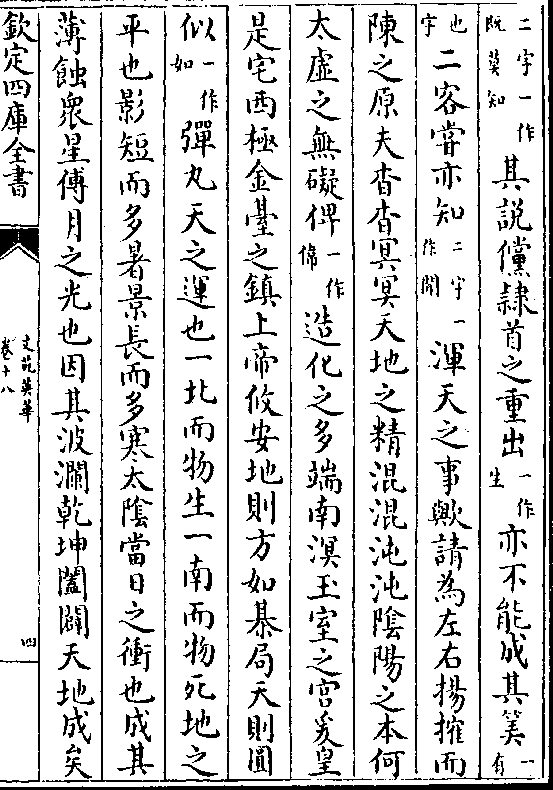 二字一作既莫知其說儻隷首之重出一作生亦不能成其筭一有
也字二客嘗亦知二字一作閒渾天之事歟請為左右揚搉而
陳之原夫杳杳冥冥天地之精混混沌沌陰陽之本何
太虛之無礙俾一作偹造化之多端南溟玉室之宫爰皇
是宅西極金臺之鎮上帝攸安地則方如棊局天則圓
似一作如彈丸天之運也一北而物生一南而物死地之
平也影短而多暑景長而多寒太陰當日之衝也成其
薄蝕衆星傅月之光也因其波瀾乾坤闔闢天地成矣
欽定四庫全書
文苑英華
卷十八
四